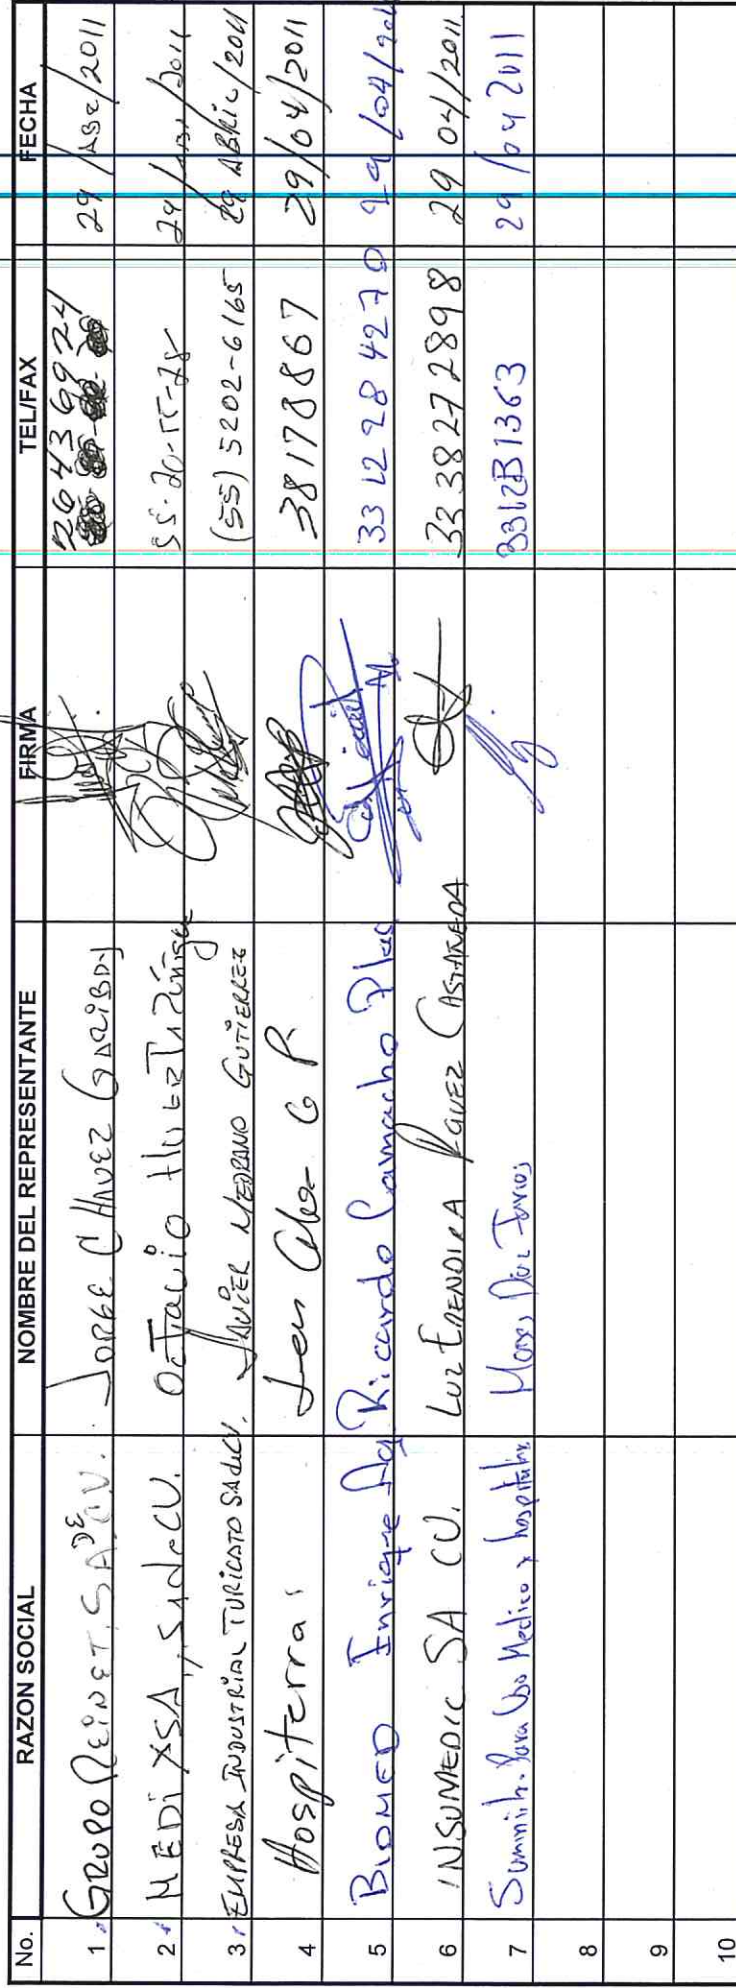 No. RAZON SOCIAL NOMBRE DEL REPRESENTANTE FIRMA TEL/FAX FECHA
1. GRUPO REINET, SA DE CV. JORGE CHAVEZ GARIBAY 26436924 29/ABR/2011
2. MEDI XSA, SA de CV. OCTAVIO HUERTA ZÚÑIGA 29/ABR/2011
3. EMPRESA INDUSTRIAL TURICATO SA de CV. JAVIER MEDRANO GUTIERREZ (55) 5202-6165 29 ABRIL/2011
4 Hospiterra G R 38178867 29/04/2011
5 BIOMED Enrique Ricardo Camacho 33 12 28 4270 29/04/
6 INSUMEDIC SA CV. LUZ ERENDIRA RGUEZ CASTAÑEDA 33 38272898 29 04/2011
7 Suminist. Para Uso Medico y hospitalario 29/04 2011
8
9
10